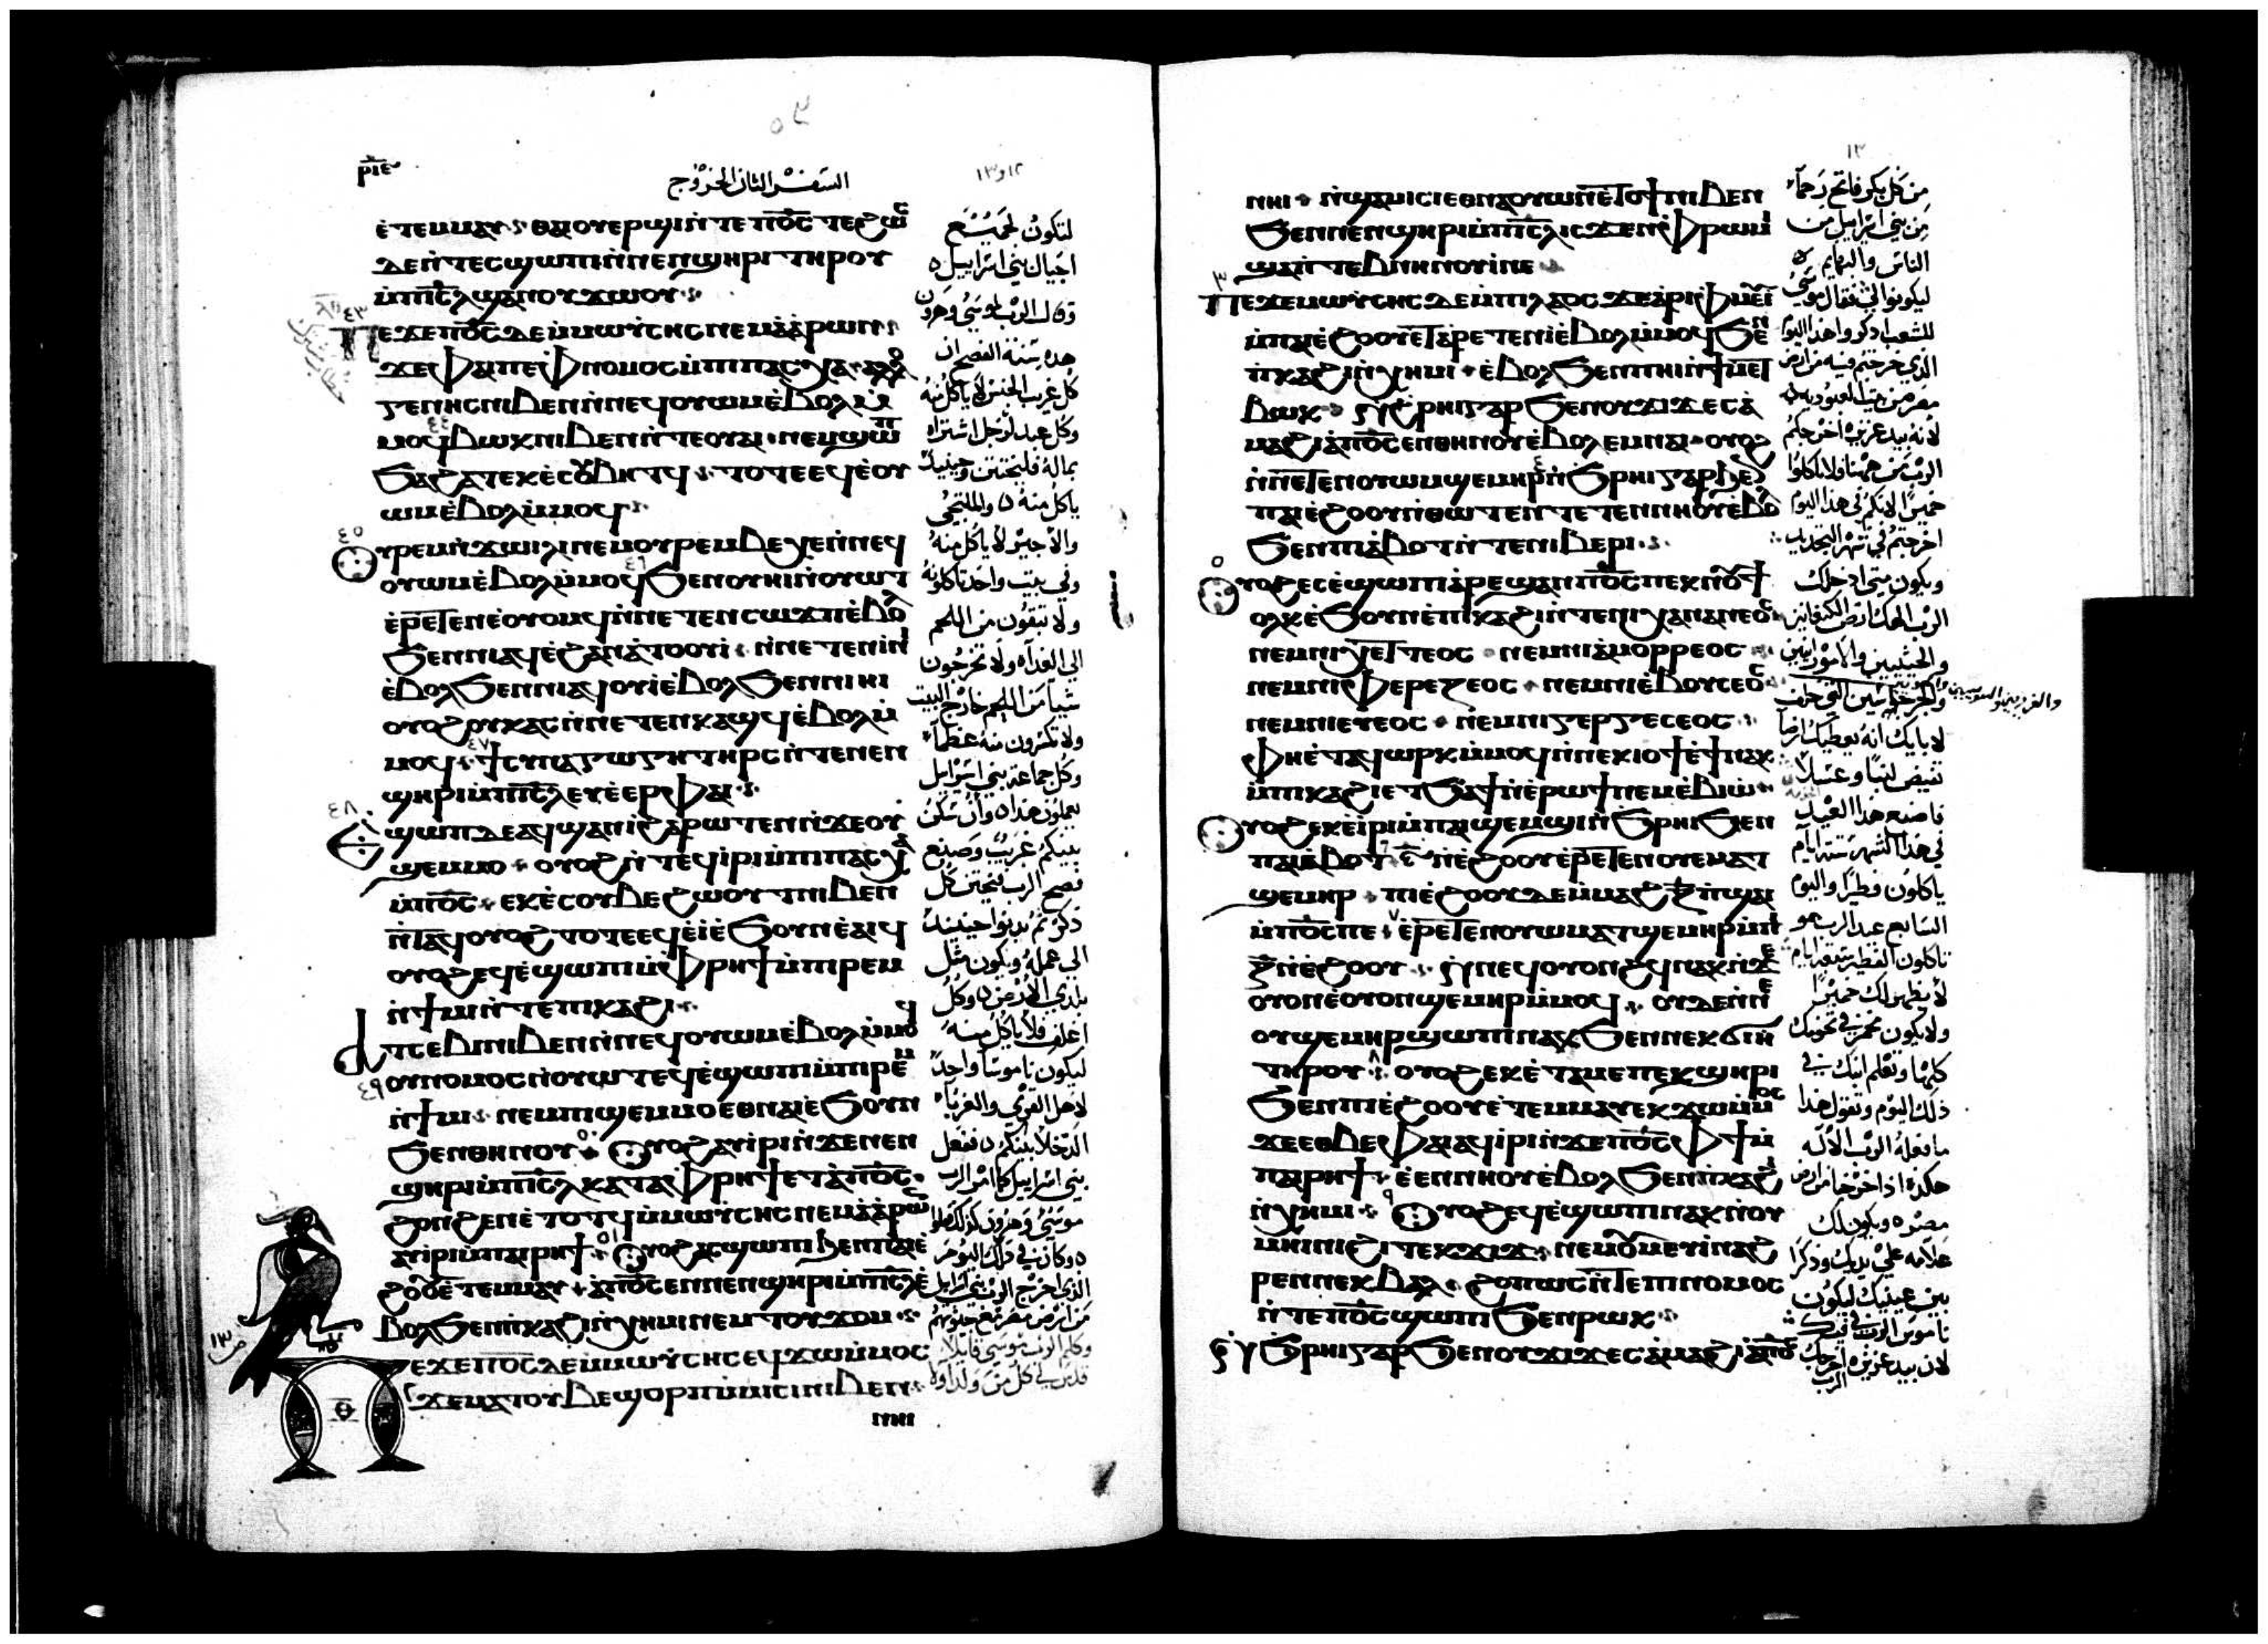 ⲣⲓⲉ
السفر الثانى الخروج
١٢ و١٣
ⲉ̀ⲧⲉⲙⲙⲁⲩ ⲑⲁⲓ ⲟⲩⲉⲣϣⲓ ⲛ̀ⲧⲉ ⲡⲟ̅ⲥ̅ ⲧⲉ ϩⲱⲥ
ⲇⲉ ⲛ̀ⲧⲉⲥϣⲱⲡⲓ ⲛ̀ⲛⲉⲛϣⲏⲣⲓ ⲧⲏⲣⲟⲩ
ⲙ̀ⲡⲓ̅ⲥ̅ⲗ ϣⲁ ⲛⲟⲩϫⲱⲟⲩ
ⲡⲉϫⲉ ⲡⲟ̅ⲥ̅ ⲇⲉ ⲙ̀ⲙⲱⲩ̀ⲥⲏⲥ ⲛⲉⲙ ⲁ̀ⲁⲣⲱⲛ
ϫⲉ ⲫⲁⲓ ⲡⲉ ⲫⲛⲟⲙⲟⲥ ⲙ̀ⲡⲓⲡⲁⲥⲭⲁ ⲁⲗⲗⲟ
ⲅⲉⲛⲏⲥ ⲛⲓⲃⲉⲛ ⲛ̀ⲛⲉϥⲟⲩⲱⲙ ⲉ̀ⲃⲟⲗ ⲙ̀
ⲙⲟϥ ⲃⲱⲕ ⲛⲓⲃⲉⲛ ⲛ̀ⲧⲉ ⲟⲩⲁⲓ ⲛⲉⲙ ϣⲱⲡ
ϧⲁ ϩⲁⲧ ⲉⲕⲉ̀ⲥⲟⲩⲃⲏⲧϥ ⲧⲟⲧⲉ ⲉϥⲉ̀ⲟⲩ
ⲱⲙ ⲉ̀ⲃⲟⲗ ⲙ̀ⲙⲟϥ
ⲟⲩⲣⲉⲙⲛ̀ϫⲱⲓⲗⲓ ⲛⲉⲙ ⲟⲩⲣⲉⲙⲃⲉⲭⲉ ⲛ̀ⲛⲉϥ
ⲟⲩⲱⲙ ⲉ̀ⲃⲟⲗ ⲙ̀ⲙⲟϥ ϧⲉⲛ ⲟⲩⲏⲓ ⲛ̀ⲟⲩⲱⲧ
ⲉ̀ⲣⲉⲧⲉⲛⲉ̀ⲟⲩⲟⲙϥ ⲛ̀ⲛⲉⲧⲉⲛⲥⲱϫⲡ ⲉ̀ⲃⲟⲗ
ϧⲉⲛ ⲛⲓⲁϥ ⲉ̀ϩⲁⲛⲁⲧⲟⲟⲩⲓ̀ ⲛ̀ⲛⲉⲧⲉⲛⲓⲛⲓ
ⲉ̀ⲃⲟⲗ ϧⲉⲛ ⲛⲓⲁϥⲟⲩⲓ̀ ⲉ̀ⲃⲟⲗ ϧⲉⲛ ⲡⲓⲏⲓ
ⲟⲩⲟϩ ⲟⲩⲕⲁⲥ ⲛ̀ⲛⲉⲧⲉⲛⲕⲁϣϥ ⲉ̀ⲃⲟⲗ ⲙ̀
ⲙⲟϥ ϯⲥⲩⲛⲁⲅⲱⲅⲏ ⲧⲏⲣⲥ ⲛ̀ⲧⲉ ⲛⲉⲛ
ϣⲏⲣⲓ ⲙ̀ⲡⲓ̅ⲥ̅ⲗ ⲉⲩⲉ̀ⲉⲣ ⲫⲁⲓ
ⲉ̀ϣⲱⲡ ⲇⲉ ⲁϥϣⲁⲛⲓ̀ ϩⲁⲣⲱⲧⲉⲛ ⲛ̀ϫⲉ ⲟⲩ
ϣⲉⲙⲙⲟ ⲟⲩⲟϩ ⲛ̀ⲧⲉϥⲓⲣⲓ ⲙ̀ⲡⲓⲡⲁⲥⲭⲁ
ⲙ̀ⲡⲟ̅ⲥ̅ ⲉⲕⲉ̀ⲥⲟⲩⲃⲉ ϩⲱⲟⲩⲧ ⲛⲓⲃⲉⲛ
ⲛ̀ⲧⲁϥ ⲟⲩⲟϩ ⲧⲟⲧⲉ ⲉϥⲉ̀ⲓ̀ ⲉ̀ϧⲟⲩⲛ ⲉ̀ⲁⲓϥ
ⲟⲩⲟϩ ⲉϥⲉ̀ϣⲱⲡⲓ ⲙ̀ⲫⲣⲏϯ ⲙ̀ⲡⲓⲣⲉⲙ
ⲛ̀ϯⲙⲓ ⲛ̀ⲧⲉ ⲡⲓⲕⲁϩⲓ
ⲁⲧⲥⲉⲃⲓ ⲛⲓⲃⲉⲛ ⲛ̀ⲛⲉϥⲟⲩⲱⲙ ⲉ̀ⲃⲟⲗ ⲙ̀ⲙⲟϥ
ⲟⲩⲛⲟⲙⲟⲥ ⲛ̀ⲟⲩⲱⲧ ⲉϥⲉ̀ϣⲱⲡⲓ ⲙ̀ⲡⲓⲣⲉⲙ
ⲛ̀ϯⲙⲓ ⲛⲉⲙ ⲡⲓϣⲉⲙⲙⲟ ⲉⲑⲛⲁⲓ̀ ⲉ̀ϧⲟⲩⲛ
ϧⲉⲛ ⲑⲏⲛⲟⲩ ⲟⲩⲟϩ ⲁⲩⲓⲣⲓ ⲛ̀ϫⲉ ⲛⲉⲛ
ϣⲏⲣⲓ ⲙ̀ⲡⲓ̅ⲥ̅ⲗ ⲕⲁⲧⲁ ⲫⲣⲏϯ ⲉⲧⲁ ⲡⲟ̅ⲥ̅
ϩⲟⲛϩⲉⲛ ⲉ̀ⲧⲟⲧϥ ⲙ̀ⲙⲱⲩ̀ⲥⲏⲥ ⲛⲉⲙ ⲁ̀ⲁⲣⲱⲛ
ⲁⲩⲓⲣⲓ ⲙ̀ⲡⲁⲓⲣⲏϯ ⲟⲩⲟϩ ⲁⲥϣⲱⲡⲓ ϧⲉⲛ ⲡⲓⲉ̀
ϩⲟⲟⲩ ⲉ̀ⲧⲉⲙⲙⲁⲩ ⲁ̀ ⲡⲟ̅ⲥ̅ ⲉⲛ ⲛⲉⲛϣⲏⲣⲓ ⲙ̀ⲡⲓ̅ⲥ̅ⲗ ⲉ̀
ⲃⲟⲗ ϧⲉⲛ ⲡ̀ⲕⲁϩⲓ ⲛ̀ⲭⲏⲙⲓ ⲛⲉⲙ ⲧⲟⲩϫⲟⲙ
ⲡⲉϫⲉ ⲡⲟ̅ⲥ̅ ⲇⲉ ⲙ̀ⲙⲱⲩ̀ⲥⲏⲥ ⲉϥϫⲱ ⲙ̀ⲙⲟⲥ
ϫⲉ ⲙⲁⲧⲟⲩⲃⲉ ϣⲟⲣⲡ ⲙ̀ⲙⲓⲥⲓ ⲛⲓⲃⲉⲛ
ⲛⲏⲓ
ⲑ
لتكون لجميع
اجيال بني اسراييل
وقال الرب لموسي وهرون
هده سنة الفصح ان
كل غريب الجنس لا ياكل منه
وكل عبد لرجل اشتراه
بماله فليختتن وحينيد
ياكل منه والملتجي
والاجير لا ياكل منه
وفي بيت واحد تاكلونه
ولا تبقون من اللحم
الي الغداه ولا تخرجون
شياً من اللحم خارج البيت
ولا تكسرون منه عظماً
وكل جماعة بني اسراييل
يعملون هدا وان سكن
بينكم غريب وصنع
فصح الرب فيختن كل
دكر تم يدنوا حينيد
الي عمله ويكون مثل
بلدي الارض وكل
اغلف فلا ياكل منه
ليكون ناموسا واحدا
لاهل القري والغربا
الدخلا بينكم ففعل
بني اسراييل كما امر الرب
موسي وهرون كدلك فعلوا
وكان في دلك اليوم
الذي اخرج الرب بني اسراييل
من ارض مصر مع جنودهم
وكلم الرب موسى قايلا
قدس لي كل من ولد اولا
١٣
ⲛⲏⲓ ⲛ̀ϣⲁⲙⲓⲥⲓ ⲉⲑⲛⲁⲟⲩⲱⲛ ⲉ̀ⲧⲟϯ ⲛⲓⲃⲉⲛ
ϧⲉⲛ ⲛⲉⲛϣⲏⲣⲓ ⲙ̀ⲡⲓ̅ⲥ̅ⲗ ⲓⲥϫⲉⲛ ⲫⲣⲱⲙⲓ
ϣⲁ ⲛ̀ⲧⲉⲃⲛⲏ ⲛⲟⲩⲓ̀ ⲛⲉ
ⲡⲉϫⲉ ⲙⲱⲩ̀ⲥⲏⲥ ⲇⲉ ⲙ̀ⲡⲓⲗⲁⲟⲥ ϫⲉ ⲁ̀ⲣⲓⲫⲙⲉⲩⲓ̀
ⲙ̀ⲡⲁⲓⲉ̀ϩⲟⲟⲩ ⲉ̀ⲧⲁⲣⲉⲧⲉⲛⲓ̀ ⲉ̀ⲃⲟⲗ ⲙ̀ⲙⲟϥ ϧⲉⲛ
ⲡ̀ⲕⲁϩⲓ ⲛ̀ⲭⲏⲙⲓ ⲉ̀ⲃⲟⲗ ϧⲉⲛ ⲡⲏⲓ ⲛ̀ϯⲙⲉⲧ
ⲃⲱⲕ ⲛ̀ϩⲣⲏⲓ ⲅⲁⲣ ϧⲉⲛ ⲟⲩϫⲓϫ ⲉⲥⲁ̀
ⲙⲁϩⲓ ⲁ̀ ⲡⲟ̅ⲥ̅ ⲉⲛ ⲑⲏⲛⲟⲩ ⲉ̀ⲃⲟⲗ ⲉⲙⲛⲁⲓ ⲟⲩⲟϩ
ⲛ̀ⲛⲉⲧⲉⲛⲟⲩⲱⲙ ϣⲉⲙⲏⲣ ⲛ̀ϧⲣⲏⲓ ⲅⲁⲣ ϧⲉⲛ
ⲡⲁⲓⲉ̀ϩⲟⲟⲩ ⲛ̀ⲑⲱⲧⲉⲛ ⲧⲉⲧⲉⲛⲛⲏⲟⲩ ⲉ̀ⲃⲟⲗ
ϧⲉⲛ ⲡⲓⲁ̀ⲃⲟⲧ ⲛ̀ⲧⲉ ⲛⲓⲃⲉⲣⲓ
ⲟⲩⲟϩ ⲉⲥⲉ̀ϣⲱⲡⲓ ⲁ̀ⲣⲉϣⲁⲛ ⲡⲟ̅ⲥ̅ ⲡⲉⲕⲛⲟⲩϯ
ⲟⲗⲕ ⲉ̀ϧⲟⲩⲛ ⲉ̀ⲡⲓⲕⲁϩⲓ ⲛ̀ⲧⲉ ⲛⲓⲭⲁⲛⲁⲛⲉⲟⲥ
ⲛⲉⲙ ⲛⲓⲭⲉⲧⲧⲉⲟⲥ ⲛⲉⲙ ⲛⲓⲁ̀ⲙⲟⲣⲣⲉⲟⲥ
ⲛⲉⲙ ⲛⲓⲫⲉⲣⲉⲍⲉⲟⲥ ⲛⲉⲙ ⲛⲓⲉ̀ⲃⲟⲩⲥⲉⲟⲥ
ⲛⲉⲙ ⲛⲓⲉⲩⲉⲟⲥ ⲛⲉⲙ ⲛⲓⲅⲉⲣⲅⲉⲥⲉⲟⲥ
ⲫⲏ ⲉ̀ⲧⲁϥⲱⲣⲕ ⲙ̀ⲙⲟϥ ⲛ̀ⲛⲉⲕⲓⲟϯ ⲉ̀ϯ ⲛⲁⲕ
ⲙ̀ⲡⲓⲕⲁϩⲓ ⲉⲧϧⲁϯ ⲛ̀ⲉⲣⲱϯ ⲛⲉⲙ ⲉ̀ⲃⲓⲱ
ⲟⲩⲟϩ ⲉⲕⲉ̀ⲓⲣⲓ ⲙ̀ⲡⲁⲓϣⲉⲙϣⲓ ⲛ̀ϧⲣⲏⲓ ϧⲉⲛ
ⲡⲁⲓⲁ̀ⲃⲟⲧ ⲋ̅ ⲛ̀ⲉ̀ϩⲟⲟⲩ ⲉ̀ⲣⲉⲧⲉⲛⲟⲩⲉⲙ ⲁⲧ
ϣⲉⲙⲏⲣ ⲡⲓⲉ̀ϩⲟⲟⲩ ⲇⲉ ⲙ̀ⲙⲁϩ ⲍ̅ ⲡ̀ϣⲁⲓ
ⲙ̀ⲡⲟ̅ⲥ̅ ⲡⲉ ⲉ̀ⲣⲉⲧⲉⲛⲟⲩⲱⲙ ⲁⲧϣⲉⲙⲏⲣ ⲙ̀ⲡⲓ
ⲍ̅ ⲛ̀ⲉ̀ϩⲟⲟⲩ ⲛ̀ⲛⲉϥⲟⲩⲟⲛϩϥ ⲛⲁⲕ ⲛ̀ϫⲉ
ⲟⲩⲟⲛ ⲉ̀ⲟⲩⲟⲛ ϣⲉⲙⲏⲣ ⲙ̀ⲙⲟϥ ⲟⲩⲇⲉ ⲛ̀ⲛⲉ
ⲟⲩϣⲉⲙⲏⲣ ϣⲱⲡⲓ ⲛⲁⲕ ϧⲉⲛ ⲛⲉⲕϭⲓⲏ
ⲧⲏⲣⲟⲩ ⲟⲩⲟϩ ⲉⲕⲉ̀ⲧⲁⲙⲉ ⲡⲉⲕϣⲏⲣⲓ
ϧⲉⲛ ⲡⲓⲉ̀ϩⲟⲟⲩ ⲉ̀ⲧⲉⲙⲙⲁⲩ ⲉⲕϫⲱ ⲙ̀ⲙⲟⲥ
ϫⲉ ⲉⲑⲃⲉ ⲫⲁⲓ ⲁϥⲓⲣⲓ ⲛ̀ϫⲉ ⲡⲟ̅ⲥ̅ ⲫϯ ⲙ̀
ⲡⲁⲓⲣⲏϯ ⲉ̀ⲉⲓⲛⲏⲟⲩ ⲉ̀ⲃⲟⲗ ϧⲉⲛ ⲡ̀ⲕⲁϩⲓ
ⲛ̀ⲭⲏⲙⲓ ⲟⲩⲟϩ ⲉϥⲉ̀ϣⲱⲡⲓ ⲛⲁⲕ ⲛ̀ⲟⲩ
ⲙⲏⲓⲛⲓ ϩⲓ ⲧⲉⲕϫⲓϫ ⲛⲉⲙ ⲟⲩⲙⲉⲩⲓ̀ ⲛⲁϩ
ⲣⲉⲛ ⲛⲉⲕⲃⲁⲗ ϩⲟⲡⲱⲥ ⲛ̀ⲧⲉ ⲡⲓⲛⲟⲙⲟⲥ
ⲛ̀ⲧⲉ ⲡⲟ̅ⲥ̅ ϣⲱⲡⲓ ϧⲉⲛ ⲣⲱⲕ
ϧⲣⲏⲓ ⲅⲁⲣ ϧⲉⲛ ⲟⲩϫⲓϫ ⲉⲥⲁ̀ⲙⲁϩⲓ ⲁ̀ ⲡⲟ̅ⲥ̅
من كل بكر فاتح رحماً
من بني اسراييل من
الناس والبهايم
ليكونوا لي فقال موسي
للشعب ادكروا هذا اليوم
الذي خرجتم فيه من ارض
مصر من بيت العبوديه
لانه بيد عزيزه اخرجكم
الرب من ههنا ولا تاكلوا
خميرا لانكم في هذا اليوم
اخرجتم في شهر التجديد
ويكون متي ادخلك
الرب الهك ارض الكنعانيين
والحيثيين والاموريين
والجرجاسين التي حلف
والفرزيين واليبوسيين
لابايك انه يعطيك ارضا
تفيض لبنا وعسلا
فاصنع هذا العيد
في هذا الشهر ستة ايام
ياكلون فطيرا واليوم
السابع عيد الرب هو
تاكلون الفطير سبعة ايام
لا يظهر لك خمير
ولا يكون مختمر في تخومك
كلها وتعلم ابنك في
ذلك اليوم وتقول هذا
ما فعله الرب الاله
هكذا اذ اخرجنا من ارض
مصر ويكون لك
علامه علي يديك وذكرا
بين عينيك ليكون
ناموس الرب في فيك
لان بيد عزيزه اخرجك
الرب